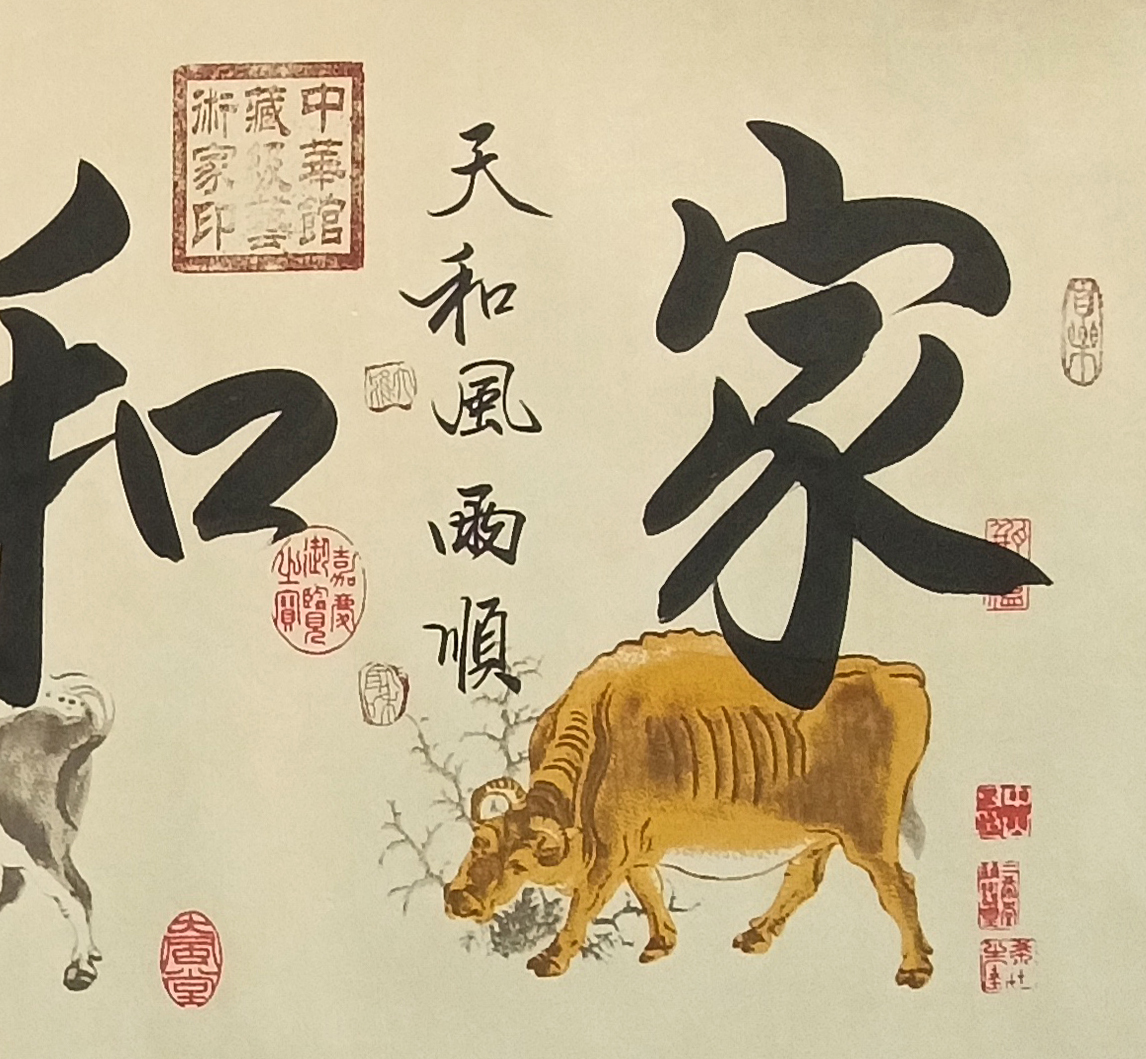 家
天和風雨順
和
中華館
藏級藝
術家印
嘉慶
御覽
之寶
大風堂